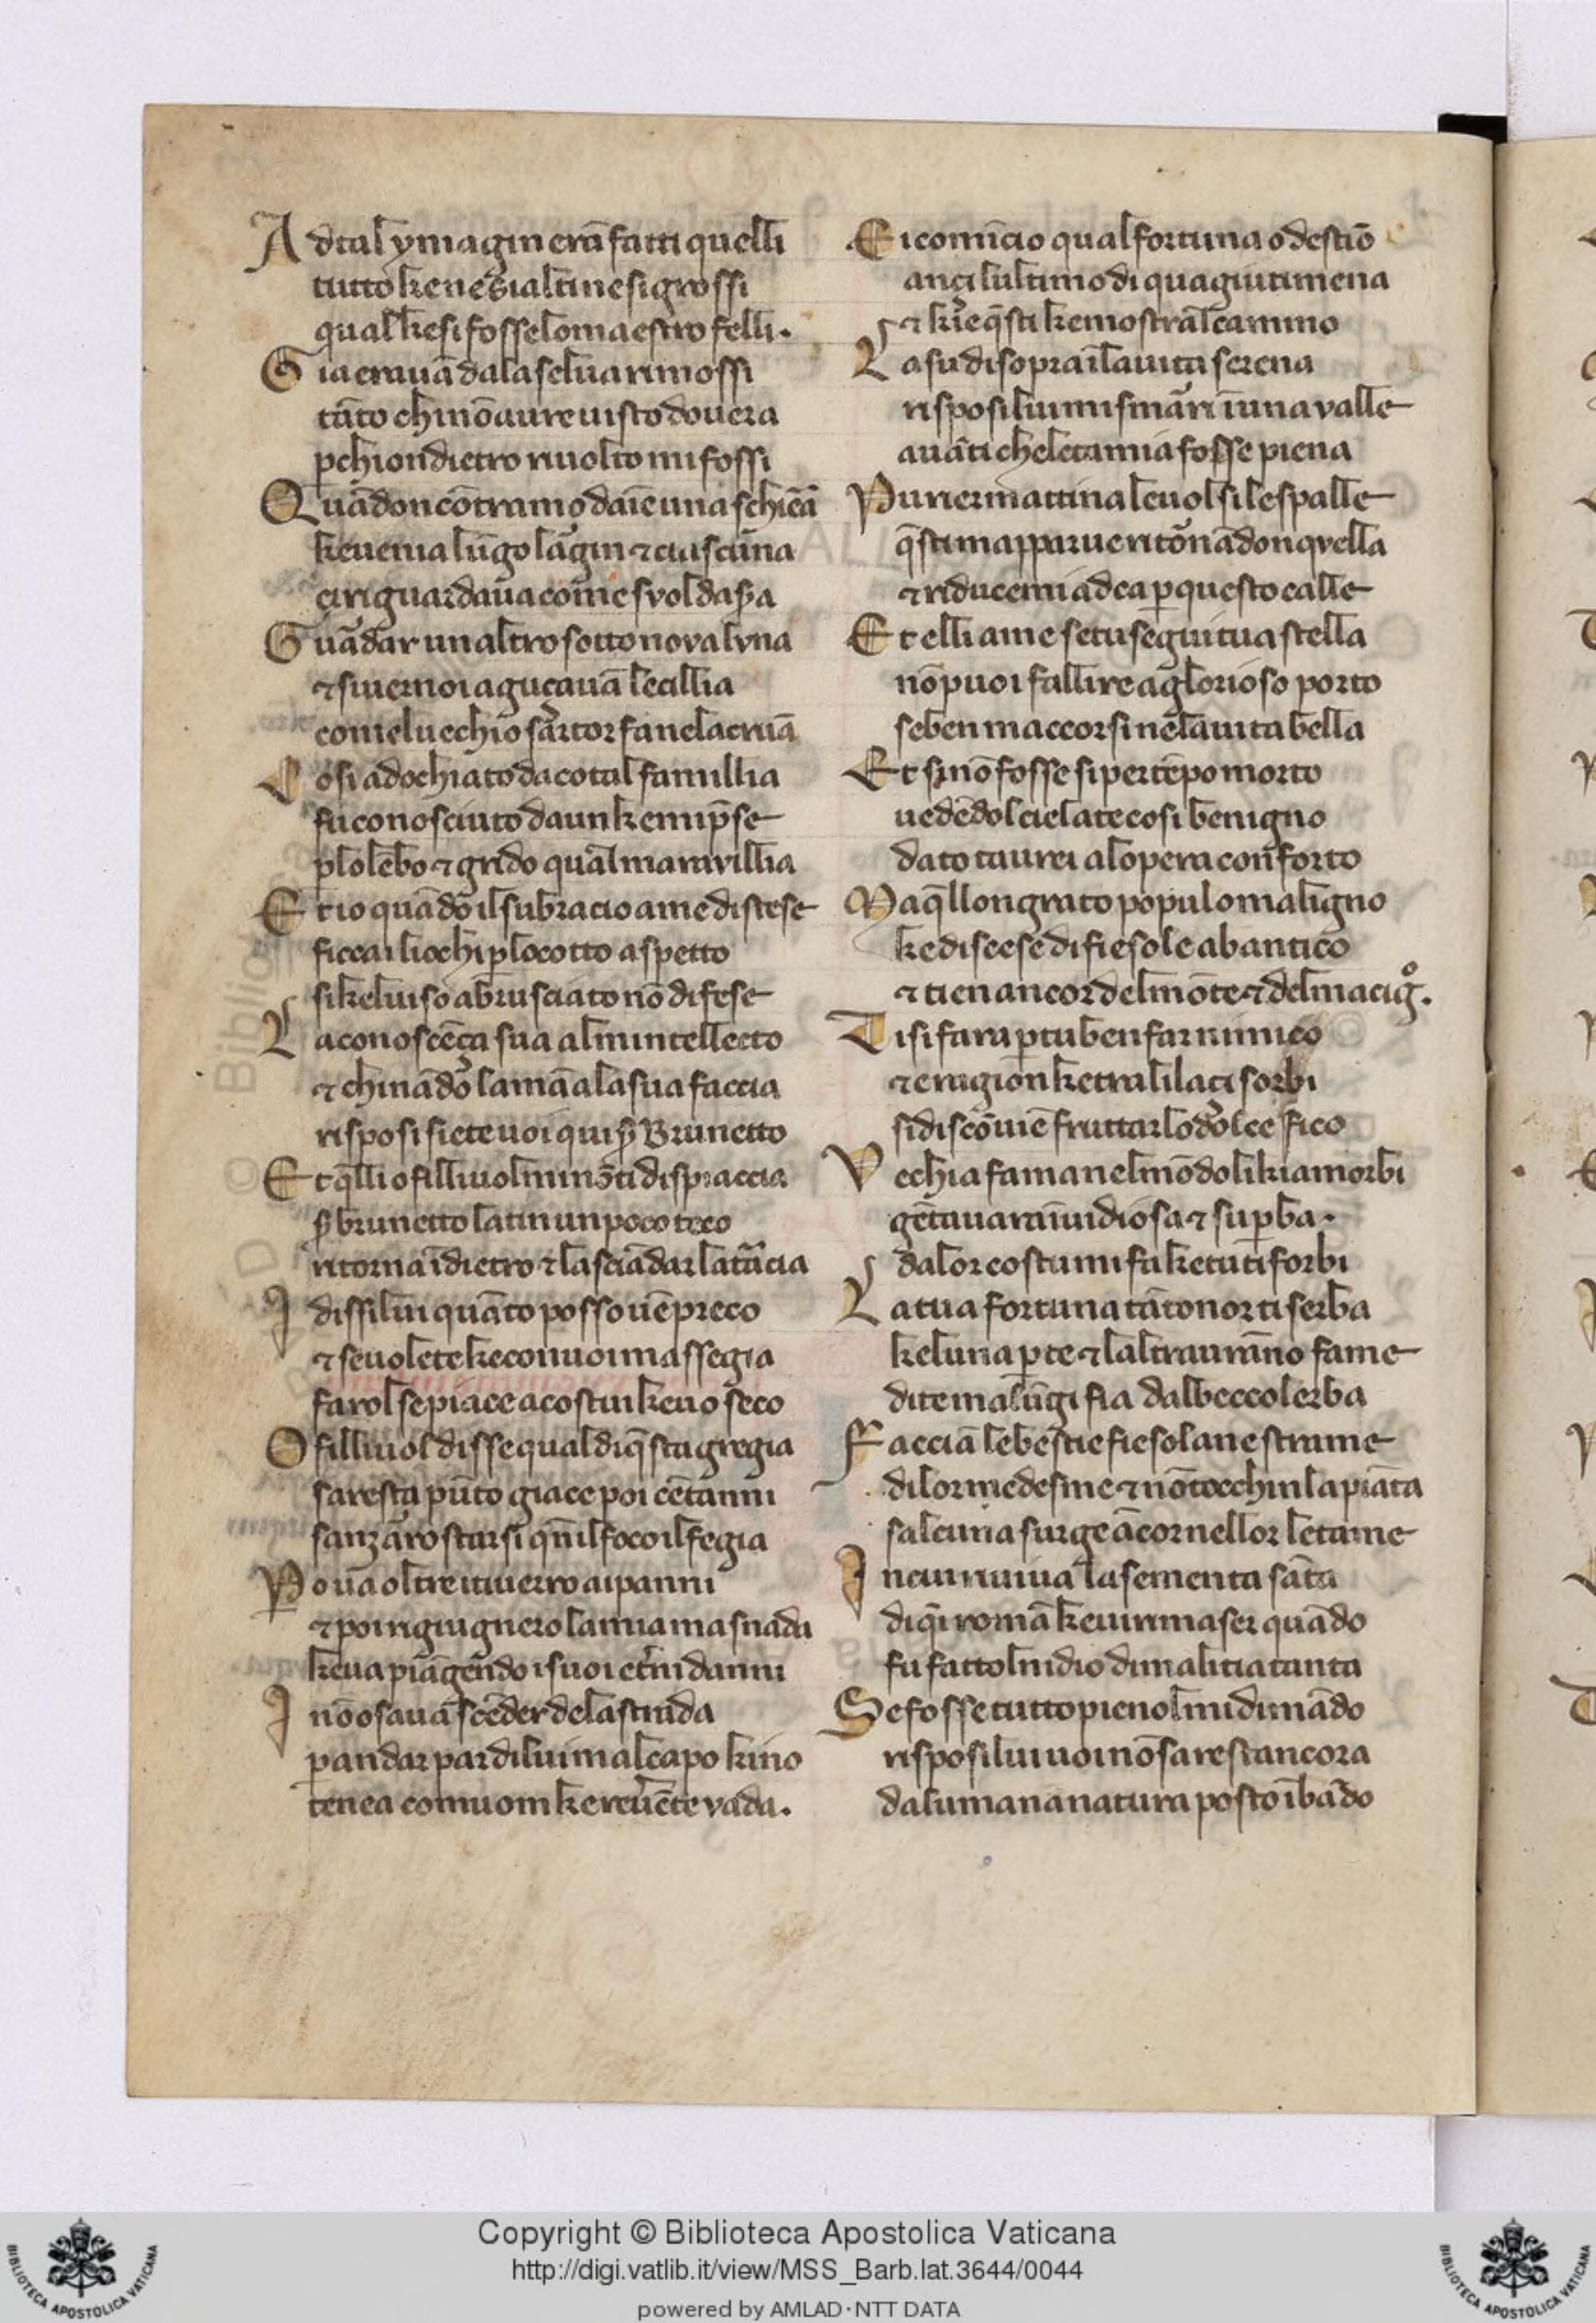 A dtal ymagin erā fatti quelli
tutto ke ne si alti ne si grossi
qual ke si fosse lo maestro felli.
G ia erauā da la selua rimossi
tāto ch i nō aure uisto dou era
ꝑch ion dietro riuolto mi fossi
Q uādo ncōtramo daīe una schiēa
ke uenia lūgo largin ⁊ ciascūna
ci riguardaua come svol da sa
G uādar un altro sotto nova lvna
⁊ si uer noi aguçauā le cillia
come luechio sartor fa ne la crūa
C osi adochiato da cotal famillia
fu conosciuto da un ke mi p̄se
ꝑ lo lēbo ⁊ grido qual marauillia
E t io quādo il su bracio a me distese
ficcai li ochi ꝑ lo cotto aspetto
si kel uiso abrusciato nō difese
L a conoscēça sua al mi intellecto
⁊ chinādo la mā a la sua faccia
risposi siete uoi qui s̄ Brunetto
E t q̄lli o filliuol mi nō ti dispiaccia
s̄ brunetto latin un poco teco
ritorna īdietro ⁊ lascia dar la trāciа
I dissi lui quāto posso uē preco
⁊ se uolete ke con uoi m assegia
farol se piace a costui ke uo seco
O filliuol disse qual di q̄sta gregia
s aresta pūto giace poi cēt anni
sanz arostarsi qn̄ il foco il fegia
P o ua oltre i ti uerro a i panni
⁊ poi rigiugnero la mia masnada
ke ua piāgendo i suoi et̄ni danni
I nō osaua scēder de la strada
ꝑ andar par di lui ma l capo kino
tenea com uom ke reuēte vada.
E i comīcio qual fortuna o destīo
ançi lultimo di qua giu ti mena
⁊ ki e q̄sti ke mostra l camino
L a su di sopra ī la uita serena
rispos i lui mi smari ī una valle
auāti che leta mia fosse piena
P ur ier mattina le uolsi le spalle
q̄sti m apparue ritornādo n qvella
⁊ riducemi a dca ꝑ questo calle
E t elli a me se tu segui tua stella
nō puoi fallire a glorioso porto
se ben m accorsi ne la uita bella
E t s i nō fosse si per tēpo morto
uedēdo l ciel a te cosi benigno
dato t aurei a l opera conforto
M a q̄llo ngrato populo maligno
ke discese di fiesole ab antico
⁊ tien ancor del mōte ⁊ del macigo.
T i si fara ꝑ tu ben far nimico
⁊ e ragion ke tra li laci sorbi
si discōuiē fruttar lo dolce fico
V echia fama nel mōdo li kiam orbi
gēt auara īuidiosa ⁊ suꝑba.
da lor costumi fa ke tu ti forbi
L a tua fortuna tāto nor ti serba
ke luna ꝑte ⁊ laltra aurāno fame
di te ma lūgi fia dal becco lerba
F acciā le bestie fiesolane strame
di lor medesme ⁊ nō tocchin la piāta
s alcuna surge ācor nel lor letame
I n cui riuiua la sementa sāta
di q̄i romā ke ui rimaser quādo
fu fatto l nidio di malitia tanta
S e fosse tutto pieno l mi dimādo
risposi lui uoi nō sareste ancora
da lumana natura posto ī bādo
Copyright © Biblioteca Apostolica Vaticana
http://digi.vatlib.it/view/MSS_Barb.lat.3644/0044
powered by AMLAD·NTT DATA
BIBLIOTECA APOSTOLICA VATICANA
BIBLIOTECA APOSTOLICA VATICANA